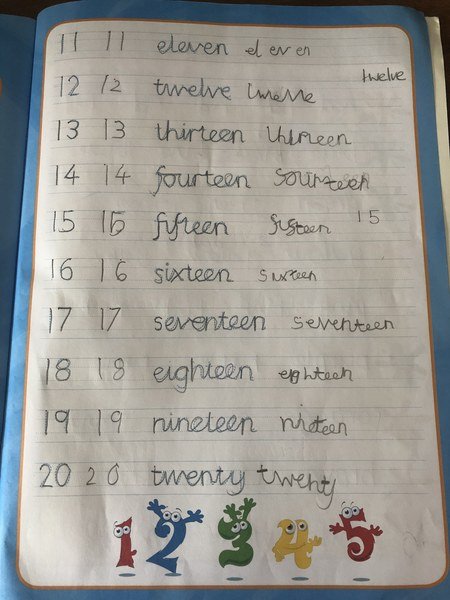 11 11 eleven eleven
12 12 twelve twelve
13 13 thirteen thirteen
14 14 fourteen sourteen
15 15 fifteen fisteen 15
16 16 sixteen sixteen
17 17 seventeen seventeen
18 18 eighteen eighteen
19 19 nineteen nieteen
20 20 twenty twenty
1 2 3 4 5